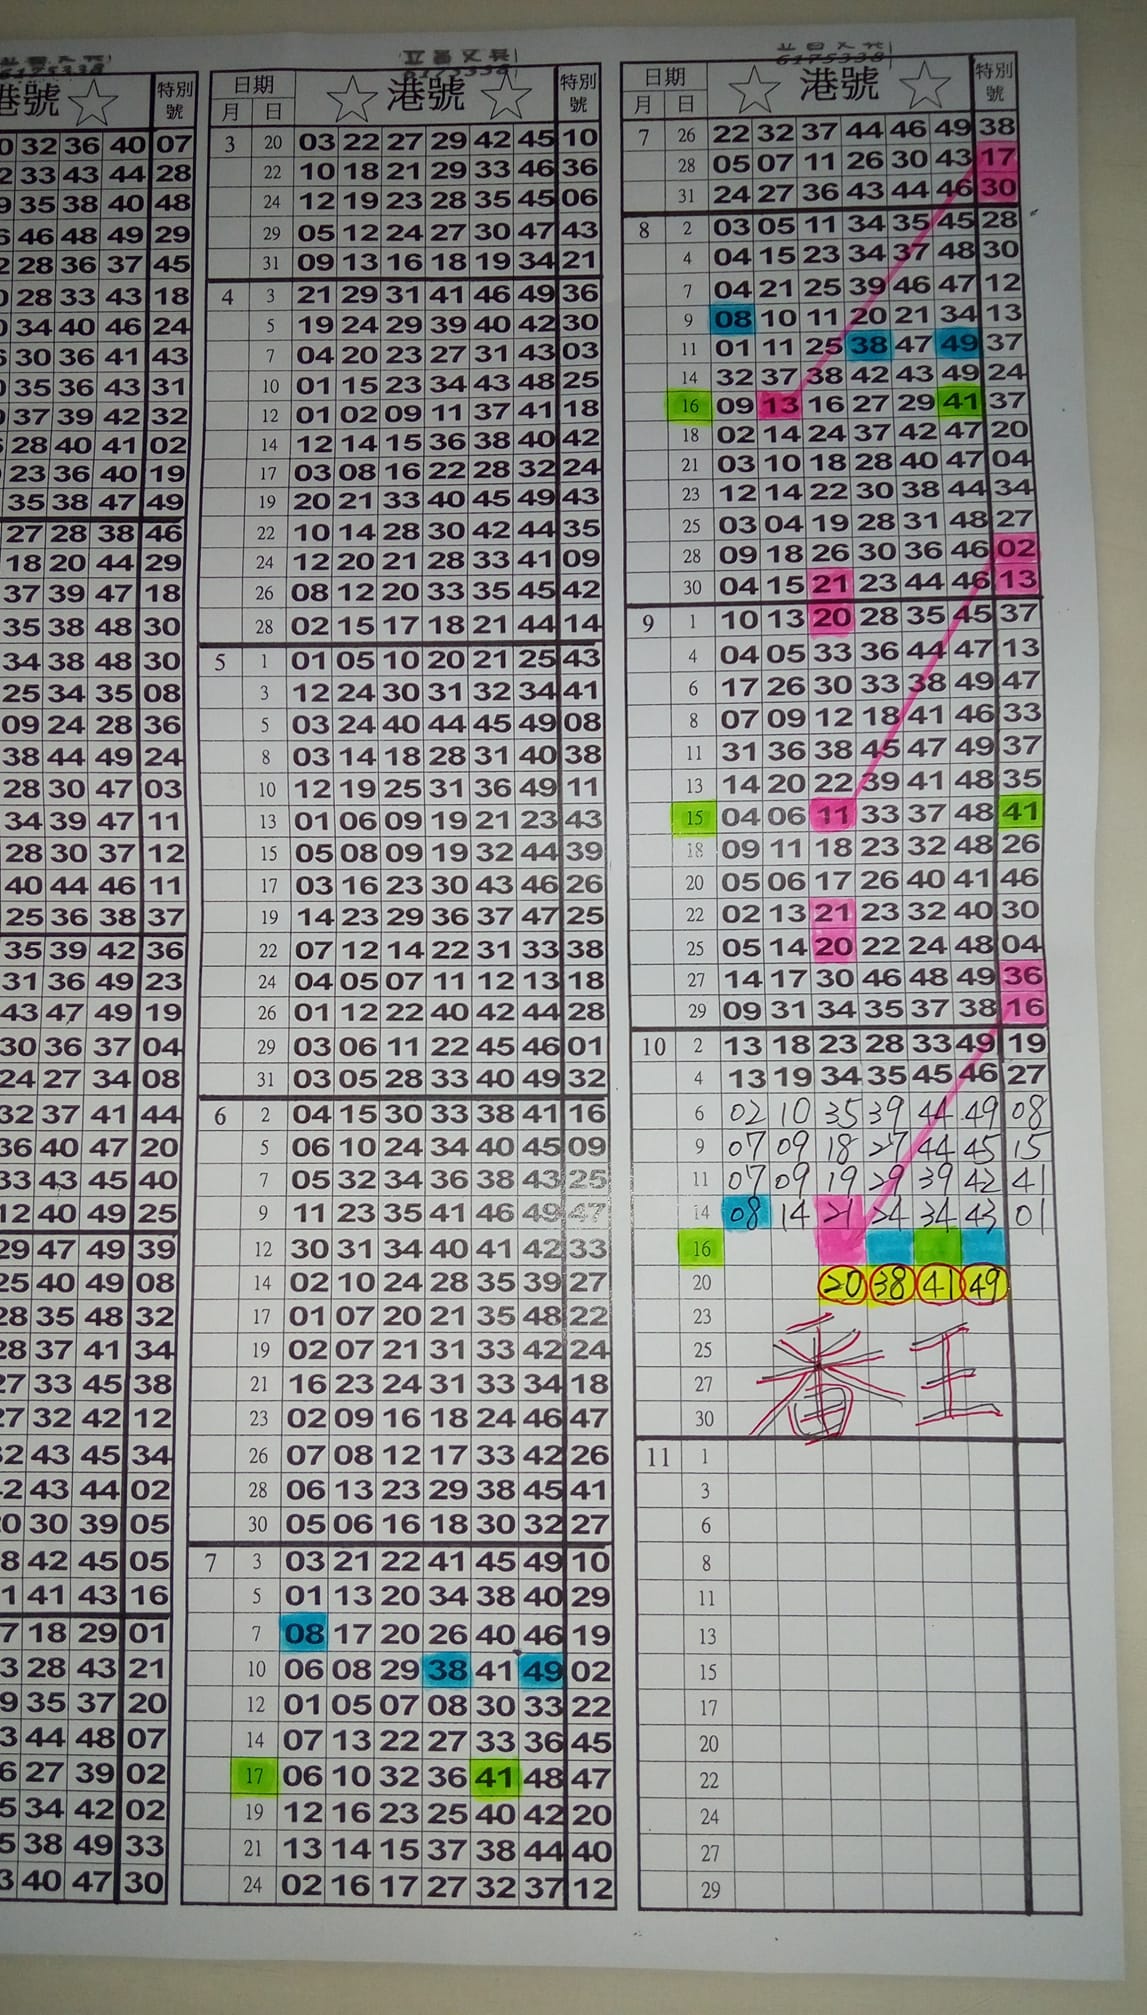 6175338
港號 特別號
32 36 40 07
33 43 44 28
35 38 40 48
46 48 49 29
28 36 37 45
28 33 43 18
34 40 46 24
30 36 41 43
35 36 43 31
37 39 42 32
28 40 41 02
23 36 40 19
35 38 47 49
27 28 38 46
18 20 44 29
37 39 47 18
35 38 48 30
34 38 48 30
25 34 35 08
09 24 28 36
38 44 49 24
28 30 47 03
34 39 47 11
28 30 37 12
40 44 46 11
25 36 38 37
35 39 42 36
31 36 49 23
43 47 49 19
30 36 37 04
24 27 34 08
32 37 41 44
36 40 47 20
33 43 45 40
12 40 49 25
29 47 49 39
25 40 49 08
28 35 48 32
28 37 41 34
27 33 45 38
27 32 42 12
43 45 34
43 44 02
30 39 05
42 45 05
41 43 16
18 29 01
28 43 21
35 37 20
44 48 07
27 39 02
34 42 02
38 49 33
40 47 30
立昌文具
6175338
日期 港號 特別號
月 日
3 20 03 22 27 29 42 45 10
22 10 18 21 29 33 46 36
24 12 19 23 28 35 45 06
29 05 12 24 27 30 47 43
31 09 13 16 18 19 34 21
4 3 21 29 31 41 46 49 36
5 19 24 29 39 40 42 30
7 04 20 23 27 31 43 03
10 01 15 23 34 43 48 25
12 01 02 09 11 37 41 18
14 12 14 15 36 38 40 42
17 03 08 16 22 28 32 24
19 20 21 33 40 45 49 43
22 10 14 28 30 42 44 35
24 12 20 21 28 33 41 09
26 08 12 20 33 35 45 42
28 02 15 17 18 21 44 14
5 1 01 05 10 20 21 25 43
3 12 24 30 31 32 34 41
5 03 24 40 44 45 49 08
8 03 14 18 28 31 40 38
10 12 19 25 31 36 49 11
13 01 06 09 19 21 23 43
15 05 08 09 19 32 44 39
17 03 16 23 30 43 46 26
19 14 23 29 36 37 47 25
22 07 12 14 22 31 33 38
24 04 05 07 11 12 13 18
26 01 12 22 40 42 44 28
29 03 06 11 22 45 46 01
31 03 05 28 33 40 49 32
6 2 04 15 30 33 38 41 16
5 06 10 24 34 40 45 09
7 05 32 34 36 38 43 25
9 11 23 35 41 46 49 47
12 30 31 34 40 41 42 33
14 02 10 24 28 35 39 27
17 01 07 20 21 35 48 22
19 02 07 21 31 33 42 24
21 16 23 24 31 33 34 18
23 02 09 16 18 24 46 47
26 07 08 12 17 33 42 26
28 06 13 23 29 38 45 41
30 05 06 16 18 30 32 27
7 3 03 21 22 41 45 49 10
5 01 13 20 34 38 40 29
7 08 17 20 26 40 46 19
10 06 08 29 38 41 49 02
12 01 05 07 08 30 33 22
14 07 13 22 27 33 36 45
17 06 10 32 36 41 48 47
19 12 16 23 25 40 42 20
21 13 14 15 37 38 44 40
24 02 16 17 27 32 37 12
6175338
日期 港號 特別號
月 日
7 26 22 32 37 44 46 49 38
28 05 07 11 26 30 43 17
31 24 27 36 43 44 46 30
8 2 03 05 11 34 35 45 28
4 04 15 23 34 37 48 30
7 04 21 25 39 46 47 12
9 08 10 11 20 21 34 13
11 01 11 25 38 47 49 37
14 32 37 38 42 43 49 24
16 09 13 16 27 29 41 37
18 02 14 24 37 42 47 20
21 03 10 18 28 40 47 04
23 12 14 22 30 38 44 34
25 03 04 19 28 31 48 27
28 09 18 26 30 36 46 02
30 04 15 21 23 44 46 13
9 1 10 13 20 28 35 45 37
4 04 05 33 36 44 47 13
6 17 26 30 33 38 49 47
8 07 09 12 18 41 46 33
11 31 36 38 45 47 49 37
13 14 20 22 39 41 48 35
15 04 06 11 33 37 48 41
18 09 11 18 23 32 48 26
20 05 06 17 26 40 41 46
22 02 13 21 23 32 40 30
25 05 14 20 22 24 48 04
27 14 17 30 46 48 49 36
29 09 31 34 35 37 38 16
10 2 13 18 23 28 33 49 19
4 13 19 34 35 45 46 27
6 02 10 35 39 44 49 08
9 07 09 18 27 44 45 15
11 07 09 19 29 39 42 41
14 08 14 21 24 34 43 01
16
20 20 38 41 49
23
25 香王
27
30
11 1
3
6
8
11
13
15
17
20
22
24
27
29